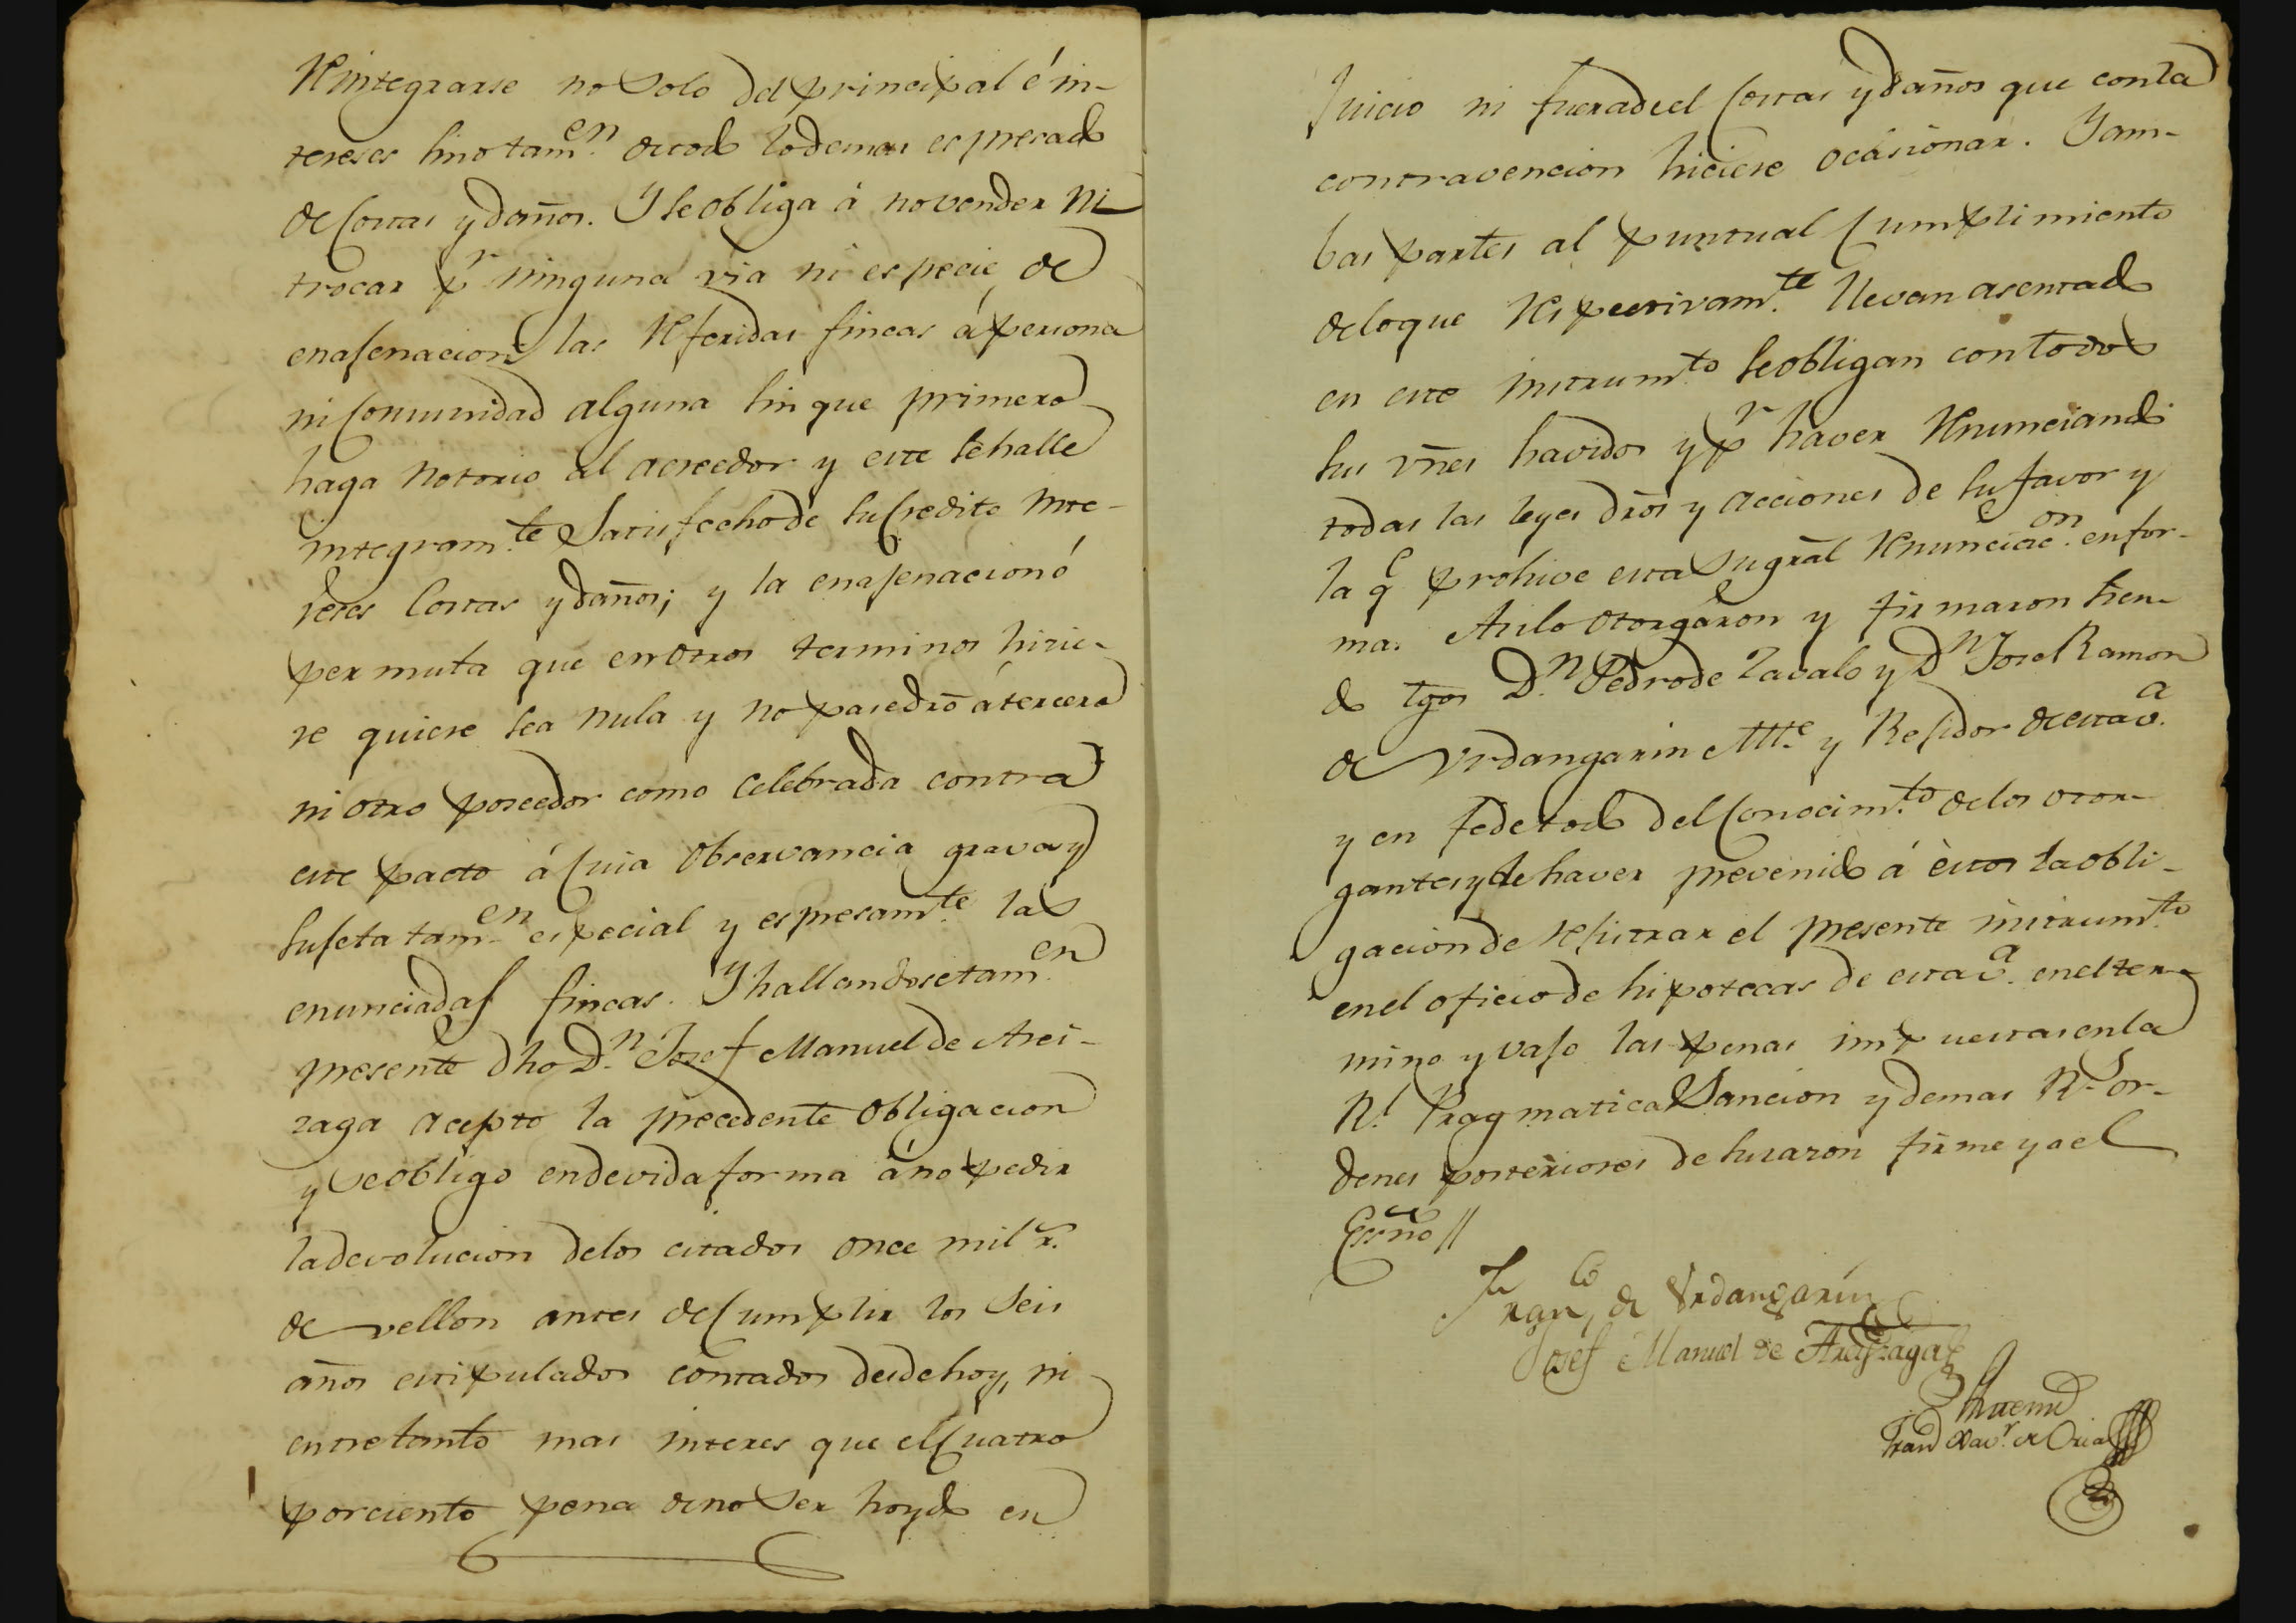 Reintegrarse no solo del principal é in-
tereses sino tamen. de todo lo demas espresado
de costas y daños. Y se obliga á no vender ni
trocar pr ninguna via ni especie, de
enagenacion las referidas fincas á persona
ni Comunidad alguna sin que primero
haga notorio al acreedor y este se halle
integramte. satisfecho de su credito inte-
reses costas y daños; y la enagenacion ó
permuta que en otros terminos hicie-
re quiere sea nula y no pase dro á tercero
ni otro poseedor como celebrada contra
este pacto á cuia observancia grava y
sujeta tamen. especial y espresamte. las
enunciadas fincas. Y hallandose tamen.
presente dho Dn. Josef Manuel de Arei-
zaga acepto la precedente obligacion
y se obligo en devida forma á no pedir
la devolucion de los citados once mil rs.
de vellon antes de cumplir los seis
años estipulados contados desde hoy, ni
entretanto mas interes que el cuatro
por ciento pena de no ser hoydo en
Juicio ni fuera de el costas y daños que con la
contravencion hiciere ocasionar. Y am-
bas partes al puntual cumplimiento
de lo que respectivamte. llevan asentado
en este instrumto. se obligan con todos
sus vñes havidos y pr haver renunciando
todas las leyes dros y acciones de su favor y
la q prohive esta su gral renunciacon. en for-
ma. Asi lo otorgaron y firmaron sien-
do tgos Dn. Pedro de Zavalo y Dn Jose Ramon
de Urdangarin Mte. y Residor de esta va.
y en fe de todo del conocimto. de los otor-
gantes y de haver prevenido á estos la obli-
gacion de rejistrar el presente instrumto.
en el oficio de hipotecas de esta va. en el ter-
mino y vajo las penas impuestas en la
Rl. Pragmatica Sancion y demas Rs. or-
denes posteriores de su razon firme yo el
Essno //
Franco. de Urdangarin
Josef Manuel de Areizaga
Ante mi
Frano Xavr. de Oria